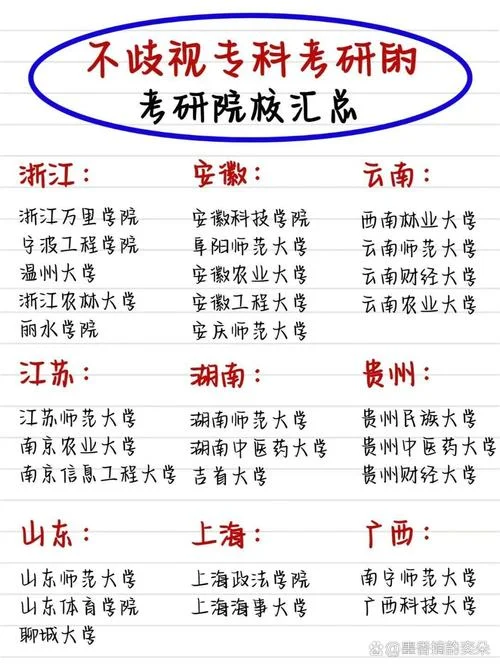 不歧视专科考研的
考研院校汇总
浙江：
浙江万里学院
宁波工程学院
温州大学
浙江农林大学
丽水学院
安徽：
安徽科技学院
阜阳师范大学
安徽农业大学
安徽工程大学
安庆师范大学
云南：
西南林业大学
云南师范大学
云南财经大学
云南农业大学
江苏：
江苏师范大学
南京农业大学
南京信息工程大学
湖南：
湖南师范大学
湖南中医药大学
吉首大学
贵州：
贵州民族大学
贵州中医药大学
贵州财经大学
山东：
山东师范大学
山东体育学院
聊城大学
上海：
上海政法学院
上海海事大学
广西：
南宁师范大学
广西科技大学